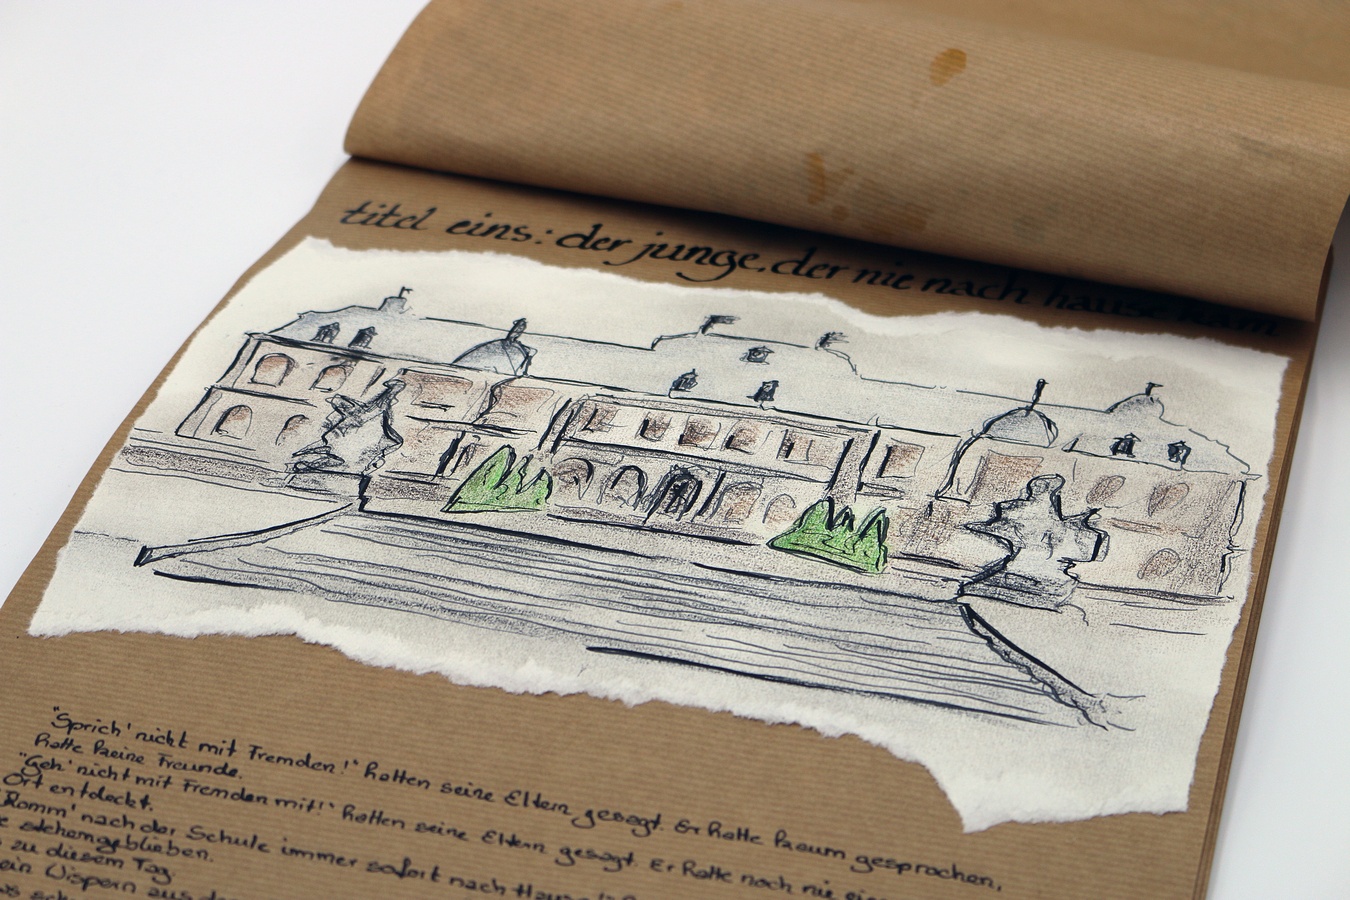 titel eins: der junge, der nie nach hause kam
"Sprich' nicht mit Fremden!" hatten seine Eltern gesagt. Er hatte kaum gesprochen,
hatte keine Freunde.
"Geh' nicht mit Fremden mit!" hatten seine Eltern gesagt. Er hatte noch nie
Ort entdeckt.
"Komm' nach der Schule immer sofort nach Hause!"
stehengeblieben.
zu diesem Tag
ein Wispern aus